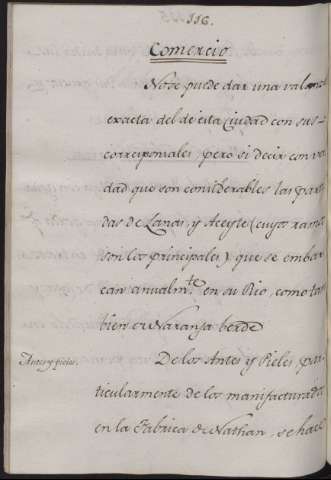 116.
Comercio
No se puede dar una valance
exacta del de esta Ciudad con sus
corresponsales pero si decir con ver
dad que son considerables las parti
das de Lanas y Aceyte (cuyos ramos
son los principales) que se embar
can anualm.te en su Rio, como tam
bien en Naranja berde
Antes y pieles.
De los Antes y Pieles par
ticularmente de los manifacturados
en la Fabrica de Nathan, se hace